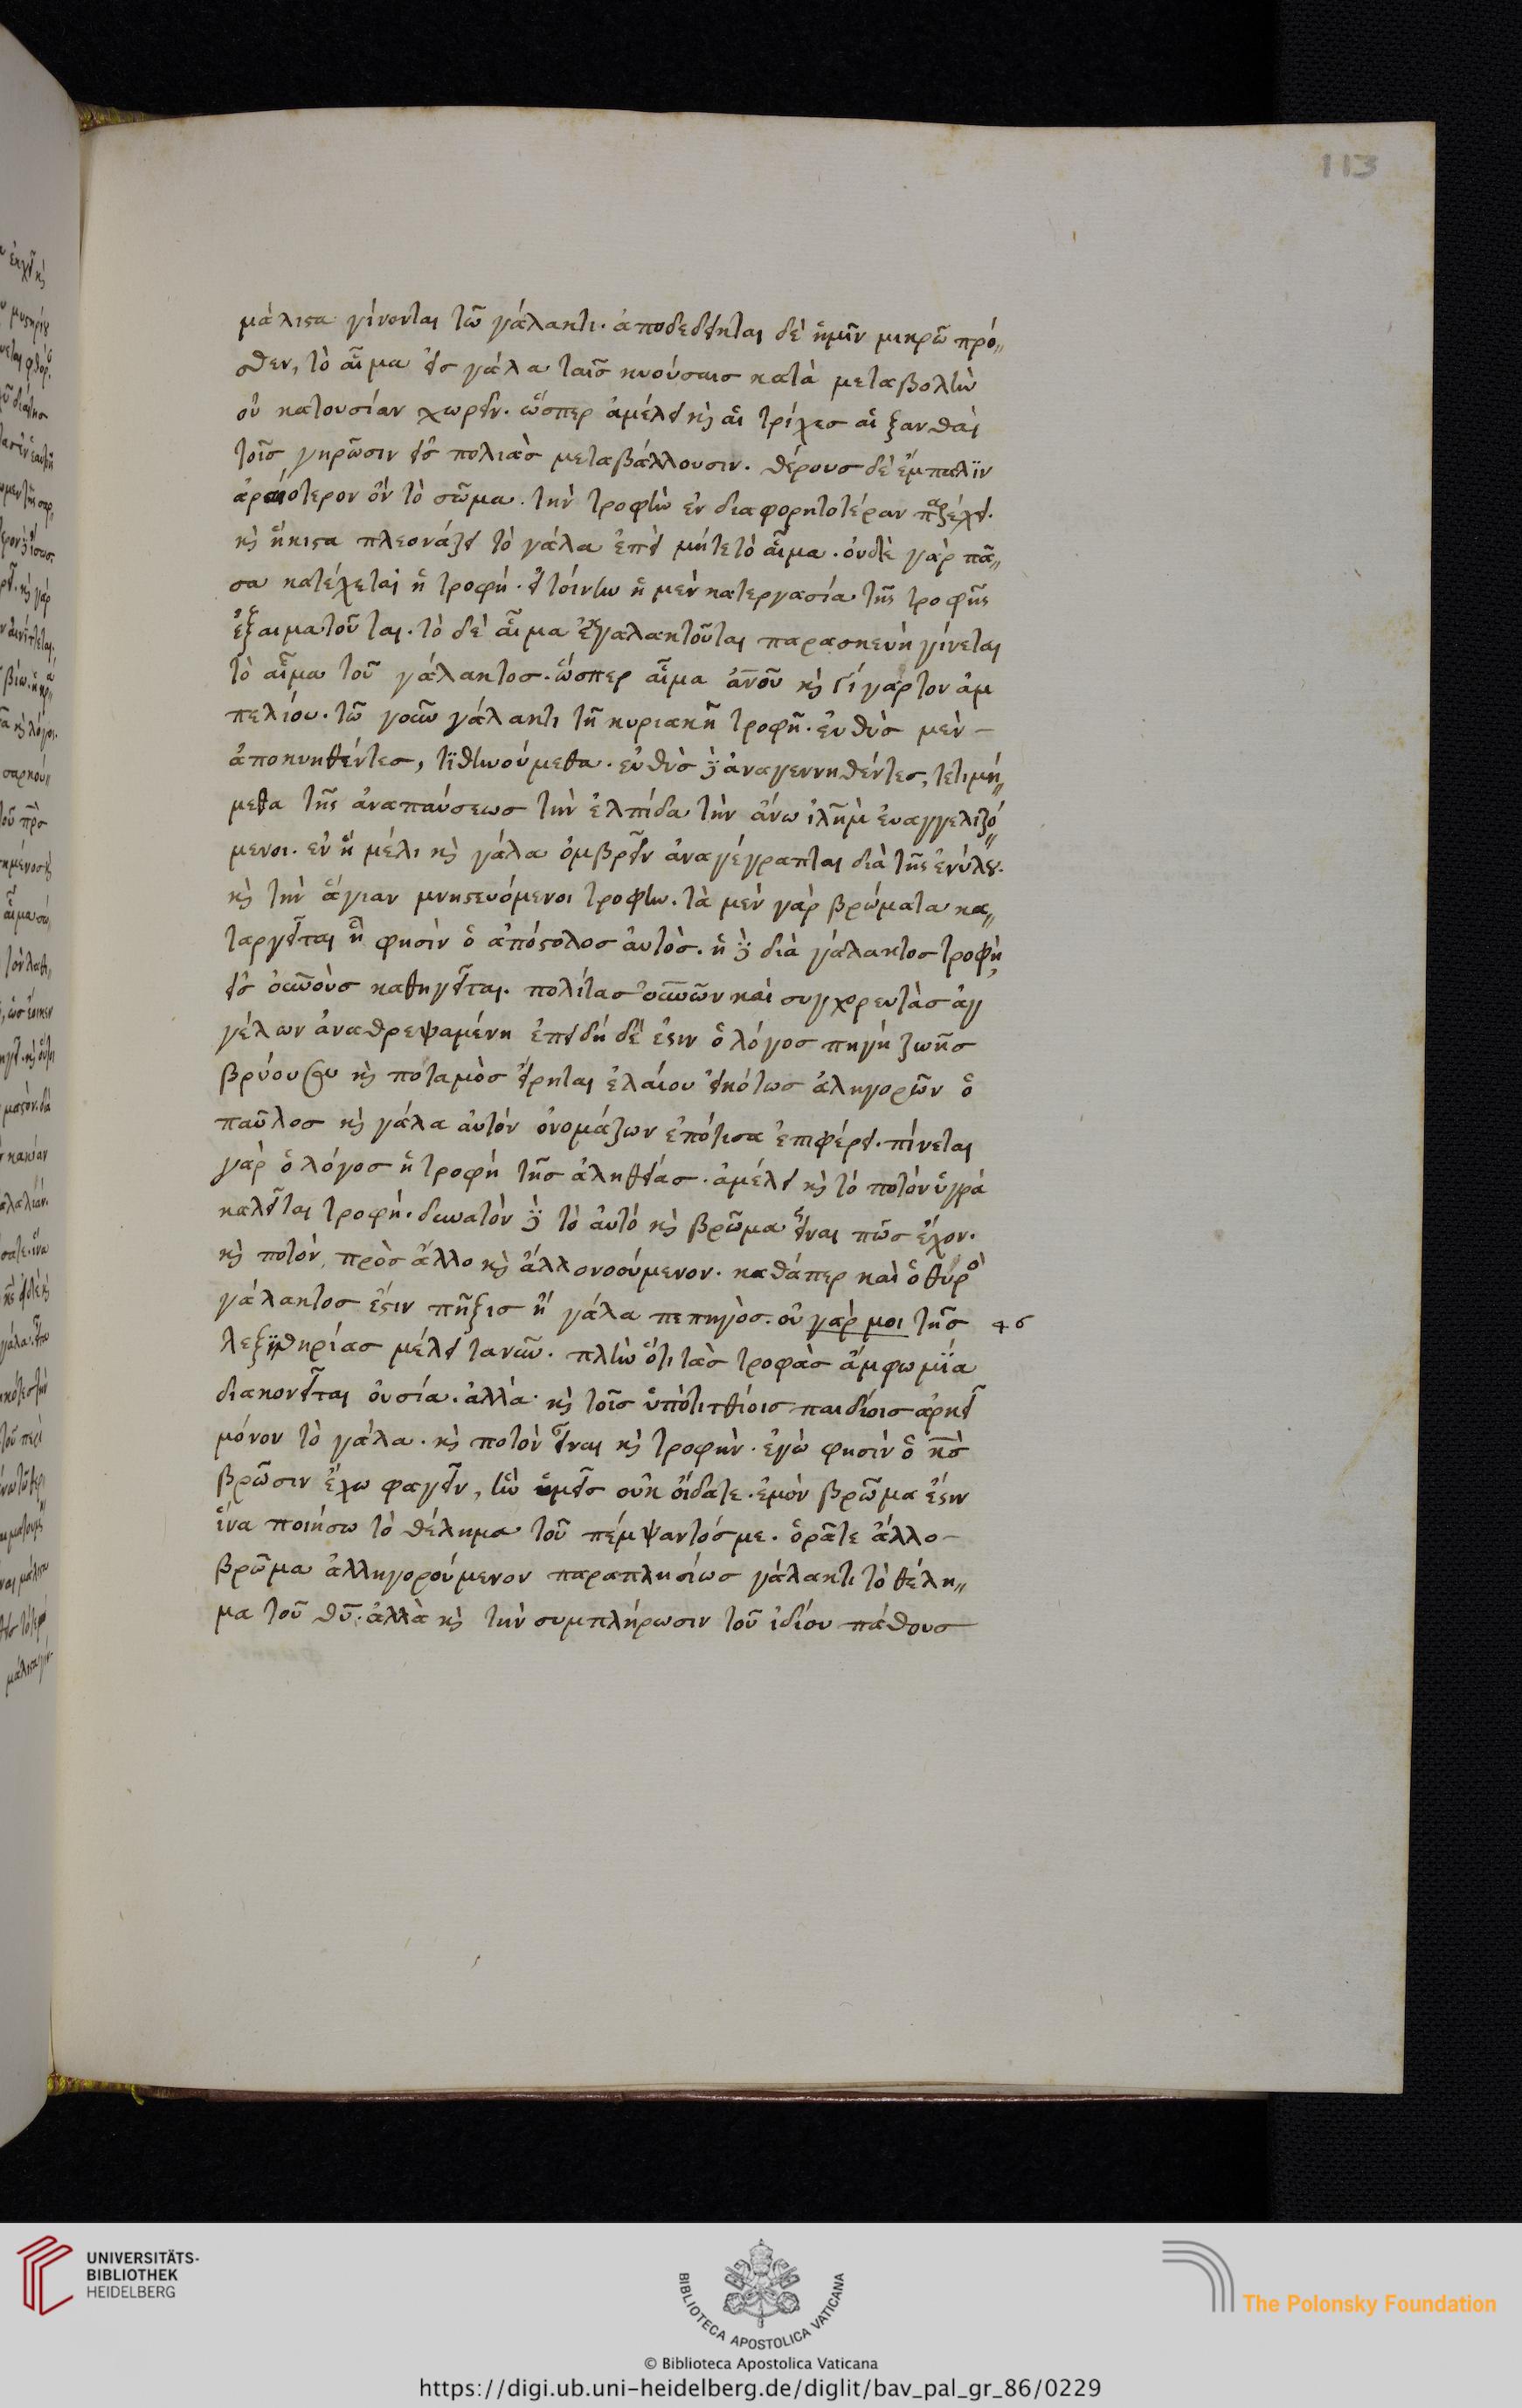 113
μάλιστα γίνονται τῶ γάλακτι. ἀποδεδεικται δὲ ἡμῖν μικρῶ πρό〃
σθεν, τὸ αἷμα εἰς γάλα ταῖς κυούσαις κατὰ μεταβολὴν
οὐ κατουσίαν χωρεῖν. ὥσπερ ἀμέλει κὶ αἱ τρίχες αἱ ξανθαὶ
τοῖς γηρῶσιν εἰς πολιὰς μεταβάλλουσιν. θέρους δὲ ἔμπαλϊν
ἀραιότερον ὂν τὸ σῶμα. τὴν τροφὴν ἐν διαφορητοτέραν
κὶ ἥκιστα πλεονάζει τὸ γάλα ἐπεὶ μήτε τὸ αἷμα. οὐδὲ γὰρ πᾶ〃
σα κατέχεται ἡ τροφή. εἰ τοίνυν ἡ μεν κατεργασία τῆς τροφῆς
ἐξαιματοῦται. τὸ δὲ αἷμα ἐκγαλακτοῦται παρασκευὴ γίνεται
τὸ αἷμα τοῦ γάλακτος. ὥσπερ αἷμα ἀνοῦ κὶ γίγαρτον ἀμ
πελίου. τῶ γοῦν γάλακτι τῆ κυριακῆ τροφῆ. εὐθὺς μὲν –
ἀποκυηθέντες, τϊθηνούμεθα. εὐθὺς δὲ ἀναγεννηθέντες, τετιμή〃
μεθα τῆς ἀναπαύσεως τὴν ἐλπίδα τὴν ἄνω ἰλῆμ εὐαγγελιζό〃
μενοι. ἐν ἧ μέλι κὶ γάλα ὀμβρεῖν ἀναγέγραπται διὰ τῆς ἐνύλου.
κὶ τὴν ἁγίαν μνηστευόμενοι τροφὴν. τὰ μὲν γὰρ βρώματα κα〃
ταργεῖται ἧ φησὶν ὁ ἀπόστολος αὐτὸς. ἡ δὲ διὰ γάλακτος τροφὴ,
εἰς οὐνοὺς καθηγεῖται. πολίτας οὐνῶν καὶ συγχορευτὰς ἀγ
γέλων ἀναθρεψαμένη ἐπειδὴ δέ ἐστιν ὁ λόγος πηγὴ ζωῆς
βρύουσα κὶ ποταμὸς εἴρηται ἐλαίου εἰκότως ἀληγορῶν ὁ
παῦλος κὶ γάλα αὐτόν ὀνομάζων ἐπότισα ἐπιφέρει. πίνεται
γὰρ ὁ λόγος ἡ τροφὴ τῆς ἀληθείας. ἀμέλει κὶ τὸ ποτὸν ὑγρὰ
καλεῖται τροφή. δυνατὸν δὲ τὸ αὐτὸ κὶ βρῶμα εἶναι πῶς ἔχον.
κὶ ποτόν, πρὸς ἄλλο κὶ ἄλλο νοούμενον. καθάπερ καὶ ὁ θύρὸ
γάλακτος ἐστιν πῆξις ἢ γάλα πεπηγὸς. οὐ γάρ μοι τῆς 46
λεξϊθηρίας μέλει τανῦν. πλὴν ὅτι τὰς τροφὰς ἄμφω μΐα
διακονεῖται οὐσία. ἀλλὰ κὶ τοῖς ὑπὸτιτθίοις παιδίοις ἀρκεῖ
μόνον τὸ γάλα. κὶ ποτὸν εἶναι κὶ τροφὴν. ἐγὼ φησὶν ὁ κς
βρῶσιν ἔχω φαγεῖν, ἣν ὑμεῖς οὐκ οἴδατε. ἐμὸν βρῶμα ἐστιν
ἵνα ποιήσω τὸ θέλημα τοῦ πέμψαντός με. ὁρᾶτε ἄλλο –
βρῶμα ἀλληγορούμενον παραπλησίως γάλακτι τὸ θέλη〃
μα τοῦ θῦ. ἀλλὰ κὶ τὴν συμπλήρωσιν τοῦ ἰδίου πάθους
UNIVERSITÄTS-
BIBLIOTHEK
HEIDELBERG
BIBLIOTECA APOSTOLICA VATICANA
The Polonsky Foundation
© Biblioteca Apostolica Vaticana
https://digi.ub.uni-heidelberg.de/diglit/bav_pal_gr_86/0229